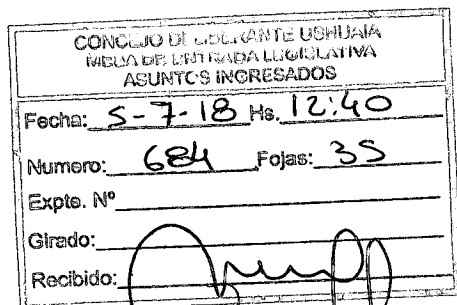 CONCEJO DELIBERANTE USHUAIA
MESA DE ENTRADA LEGISLATIVA
ASUNTOS INGRESADOS
Fecha: 5-7-18 Hs. 12:40
Numero: 684 Fojas: 35
Expte. Nº
Girado:
Recibido: